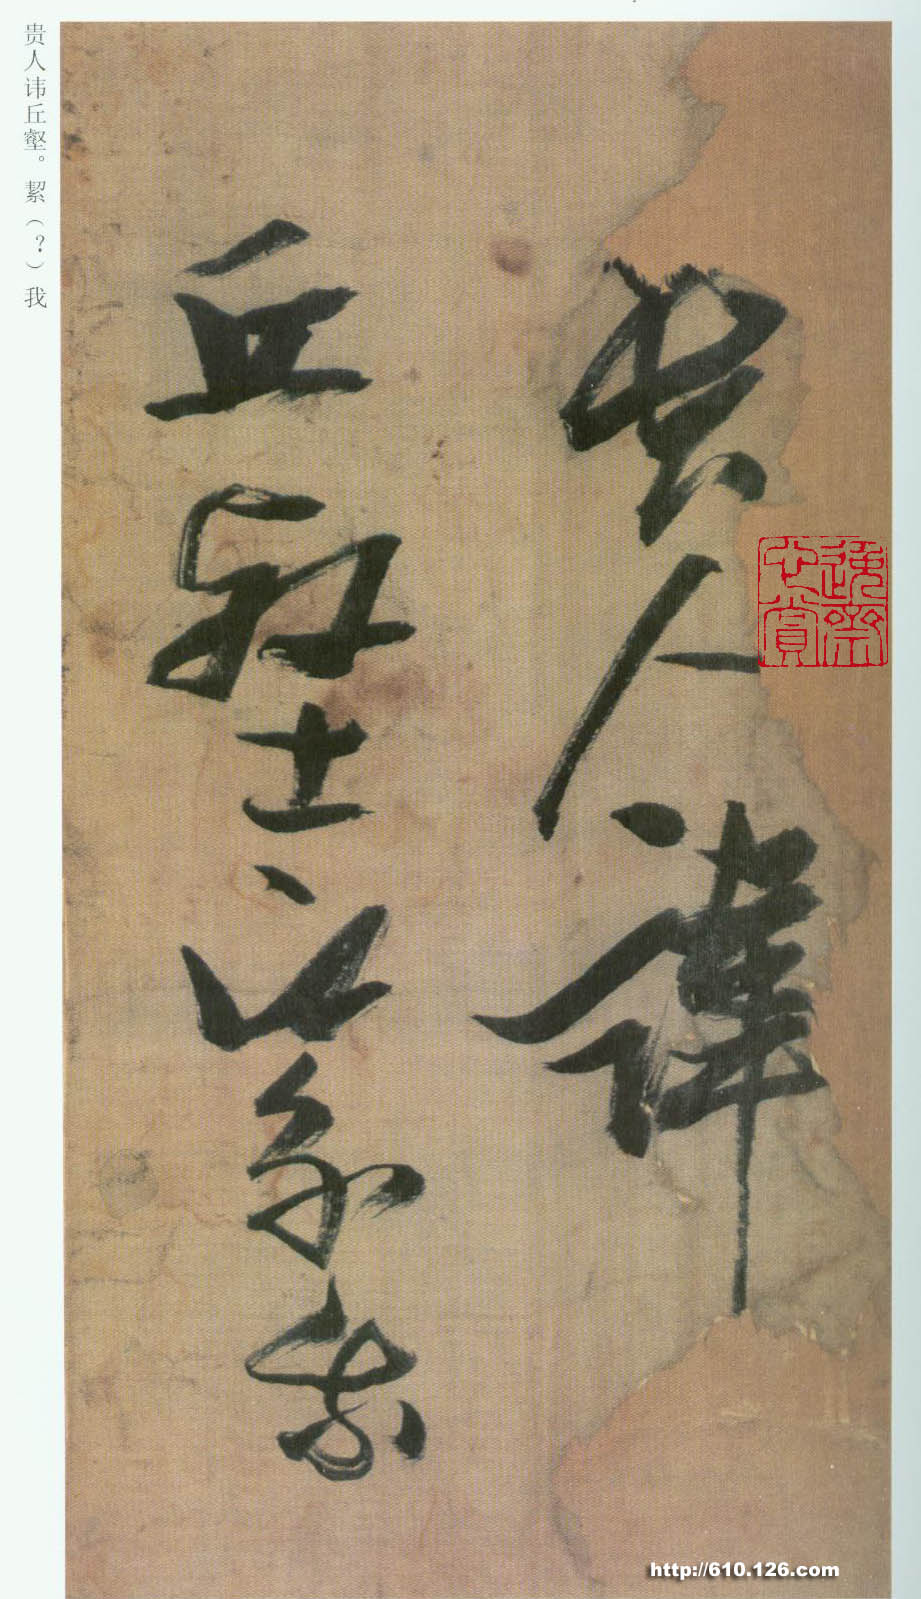 貴人諱
丘壑絜我
贵人讳丘壑。絜(?)我
http://610.126.com